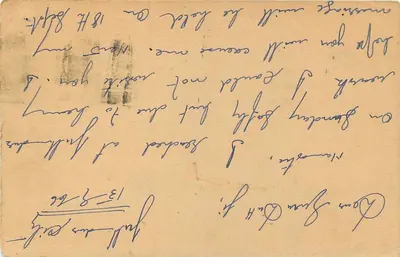 Jullundur City
13-9-66
Dear Guru Datt Ji,
Namaste. I reached at Jullundur
on Sunday safely but due to heavy
work I could not write you. I
hope you will excuse me. my
marriage will be held on 18th Sept.